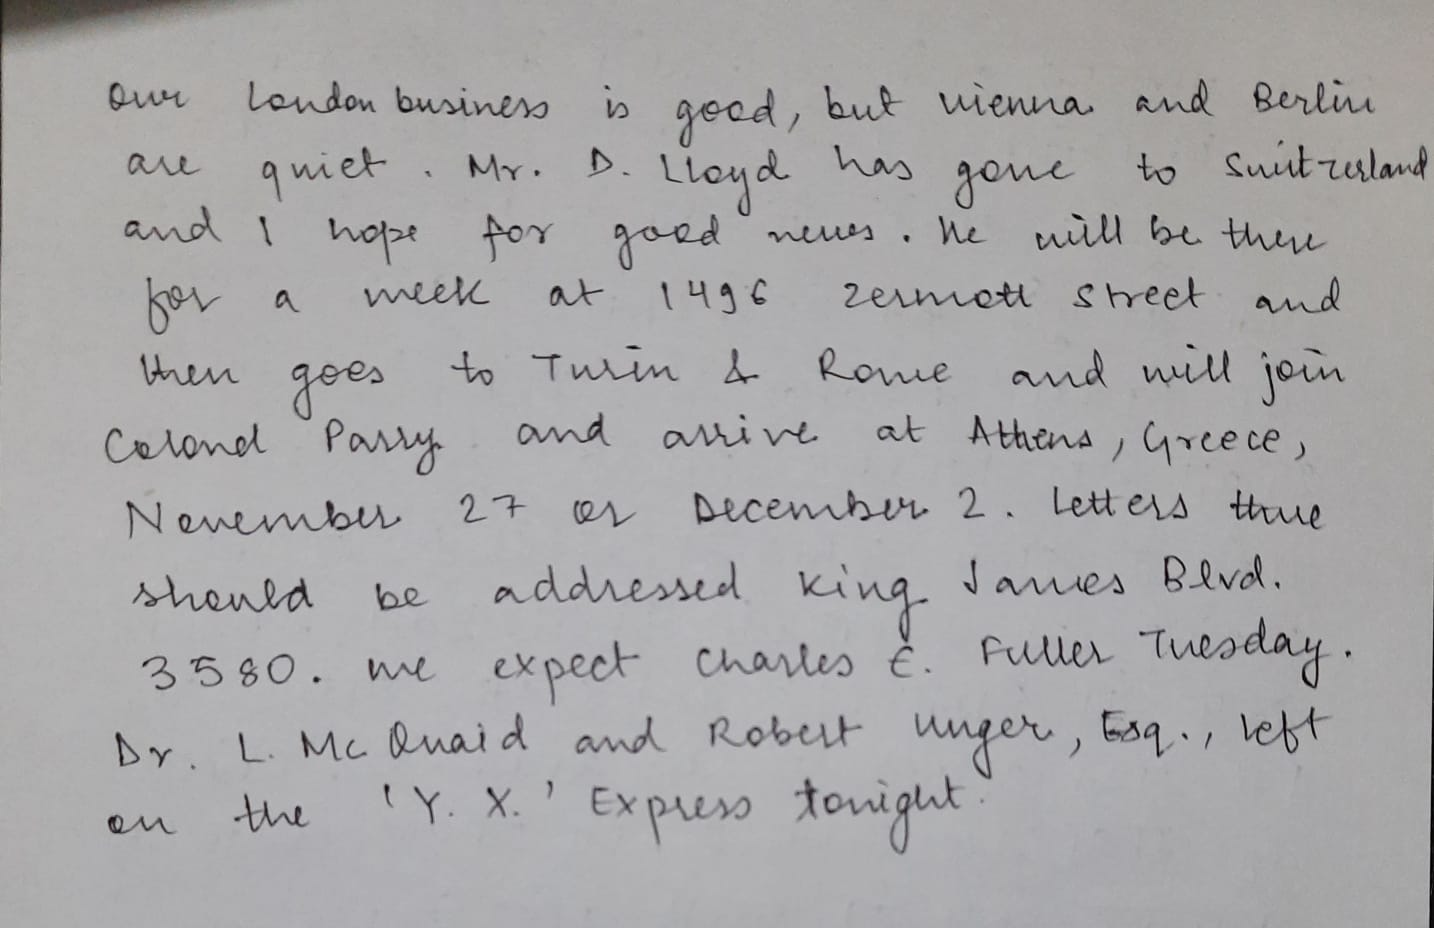 Our London business is good, but vienna and Berlin
are quiet. Mr. D. Lloyd has gone to Switzerland
and I hope for good news. He will be there
for a week at 1496 zermott street and
then goes to Turin & Rome and will join
Colonel Parry and arrive at Athens, Greece,
November 27 or December 2. Letters there
should be addressed king James Blvd.
3580. we expect Charles E. Fuller Tuesday.
Dr. L. Mc Quaid and Robert Unger, Esq., left
on the 'Y. X.' Express tonight.